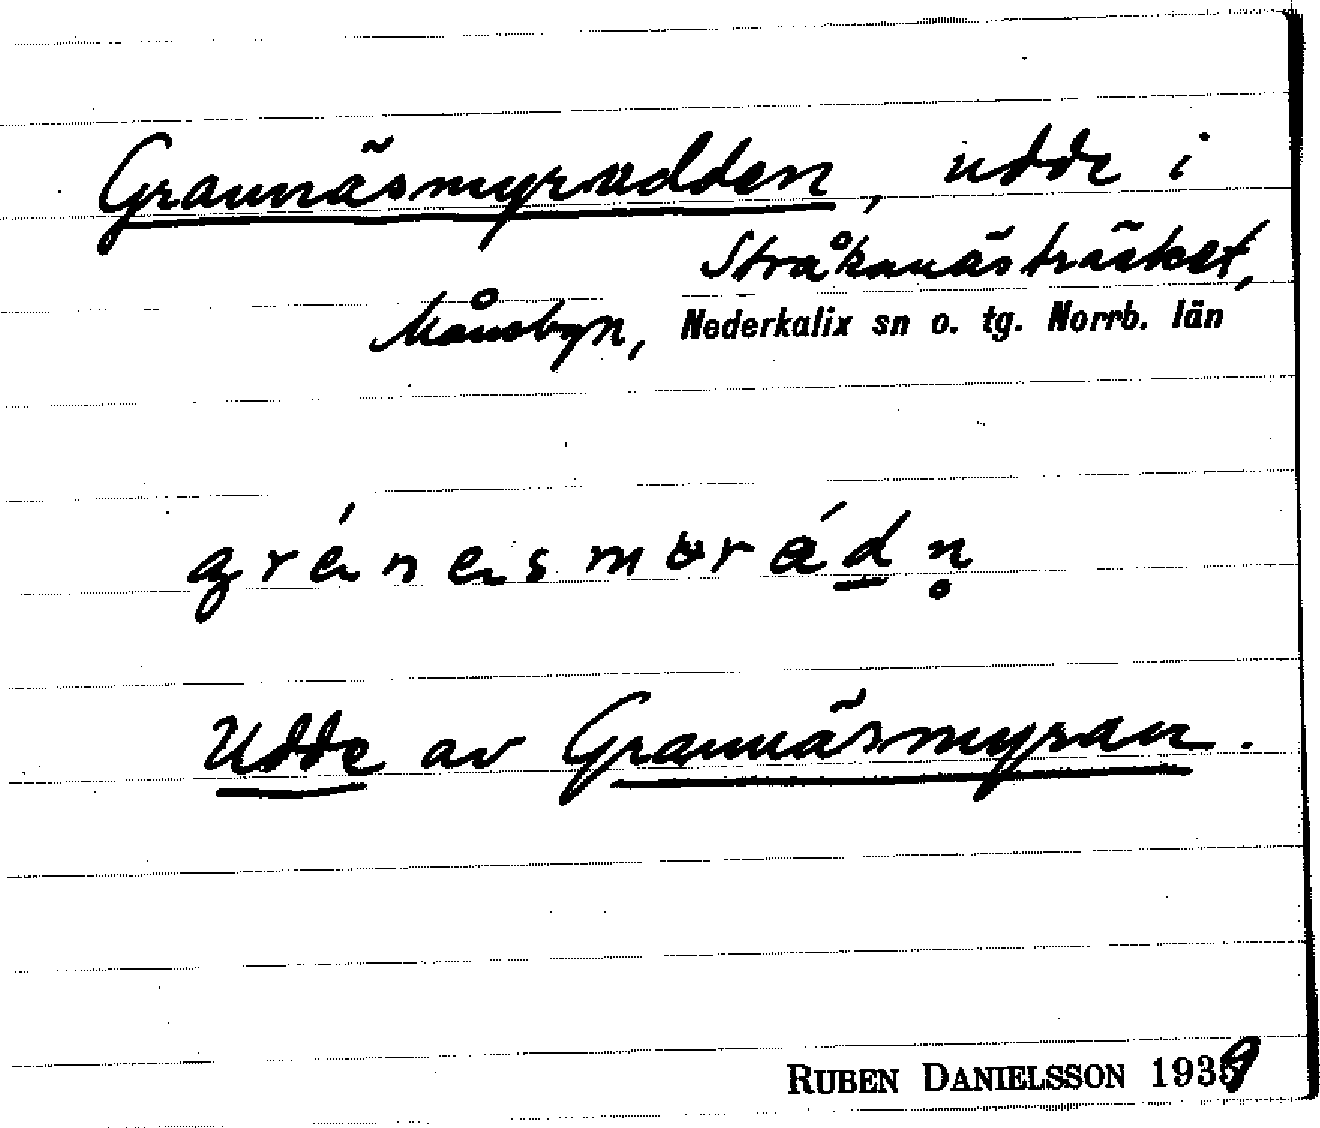 Grannäsmyrudden, udde i
Stråkanästräsket,
Månsbyn, Nederkalix sn o. tg. Norrb. län
Udde av Grannäsmyran.
RUBEN DANIELSSON 1939